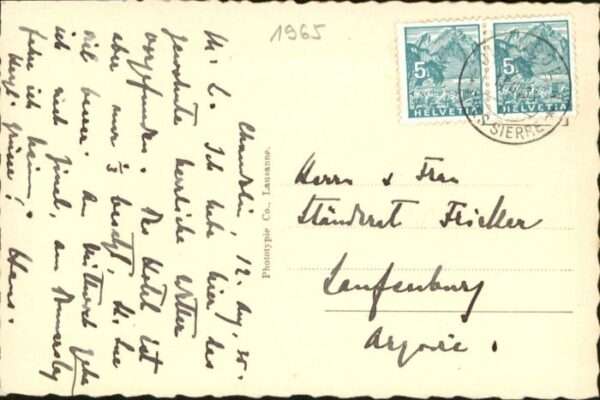 1965
5
HELVETIA
5
HELVETIA
SIERRE
Chandolin, 12. Aug. 35.
M. L. Ich habe hier das
gewohnte herrliche Wetter
vorgefunden. Das Hotel ist
aber nur 1/3 besetzt,
viel besser. Am Mittwoch gehe
ich nach Zinal, am Donnerstag
fahre ich heim.
Herzl. Grüsse, Hans.
Phototypie Co., Lausanne.
Herrn & Frau
Ständerat Fricker
Laufenburg
Argovie.